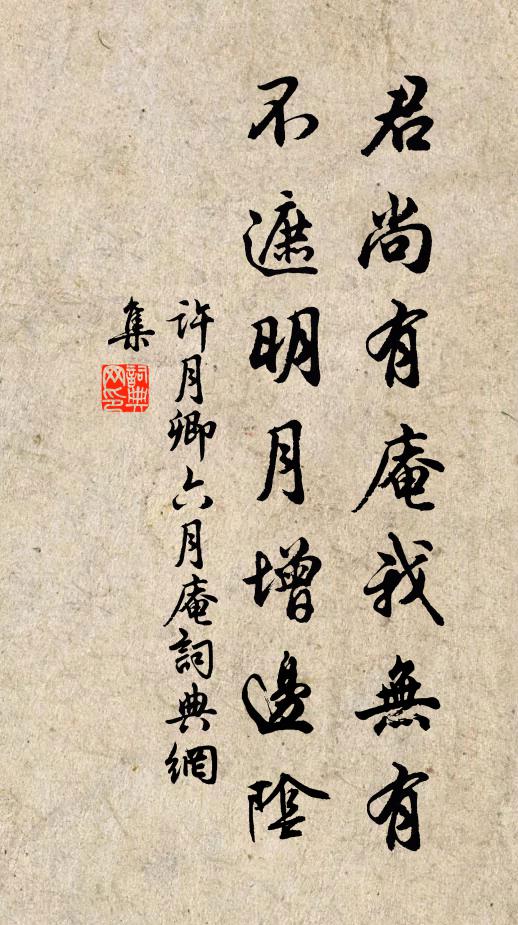 君尚有庵我無有
不遮明月增邊陰
許月卿六月庵詞典網
集
詞典網印